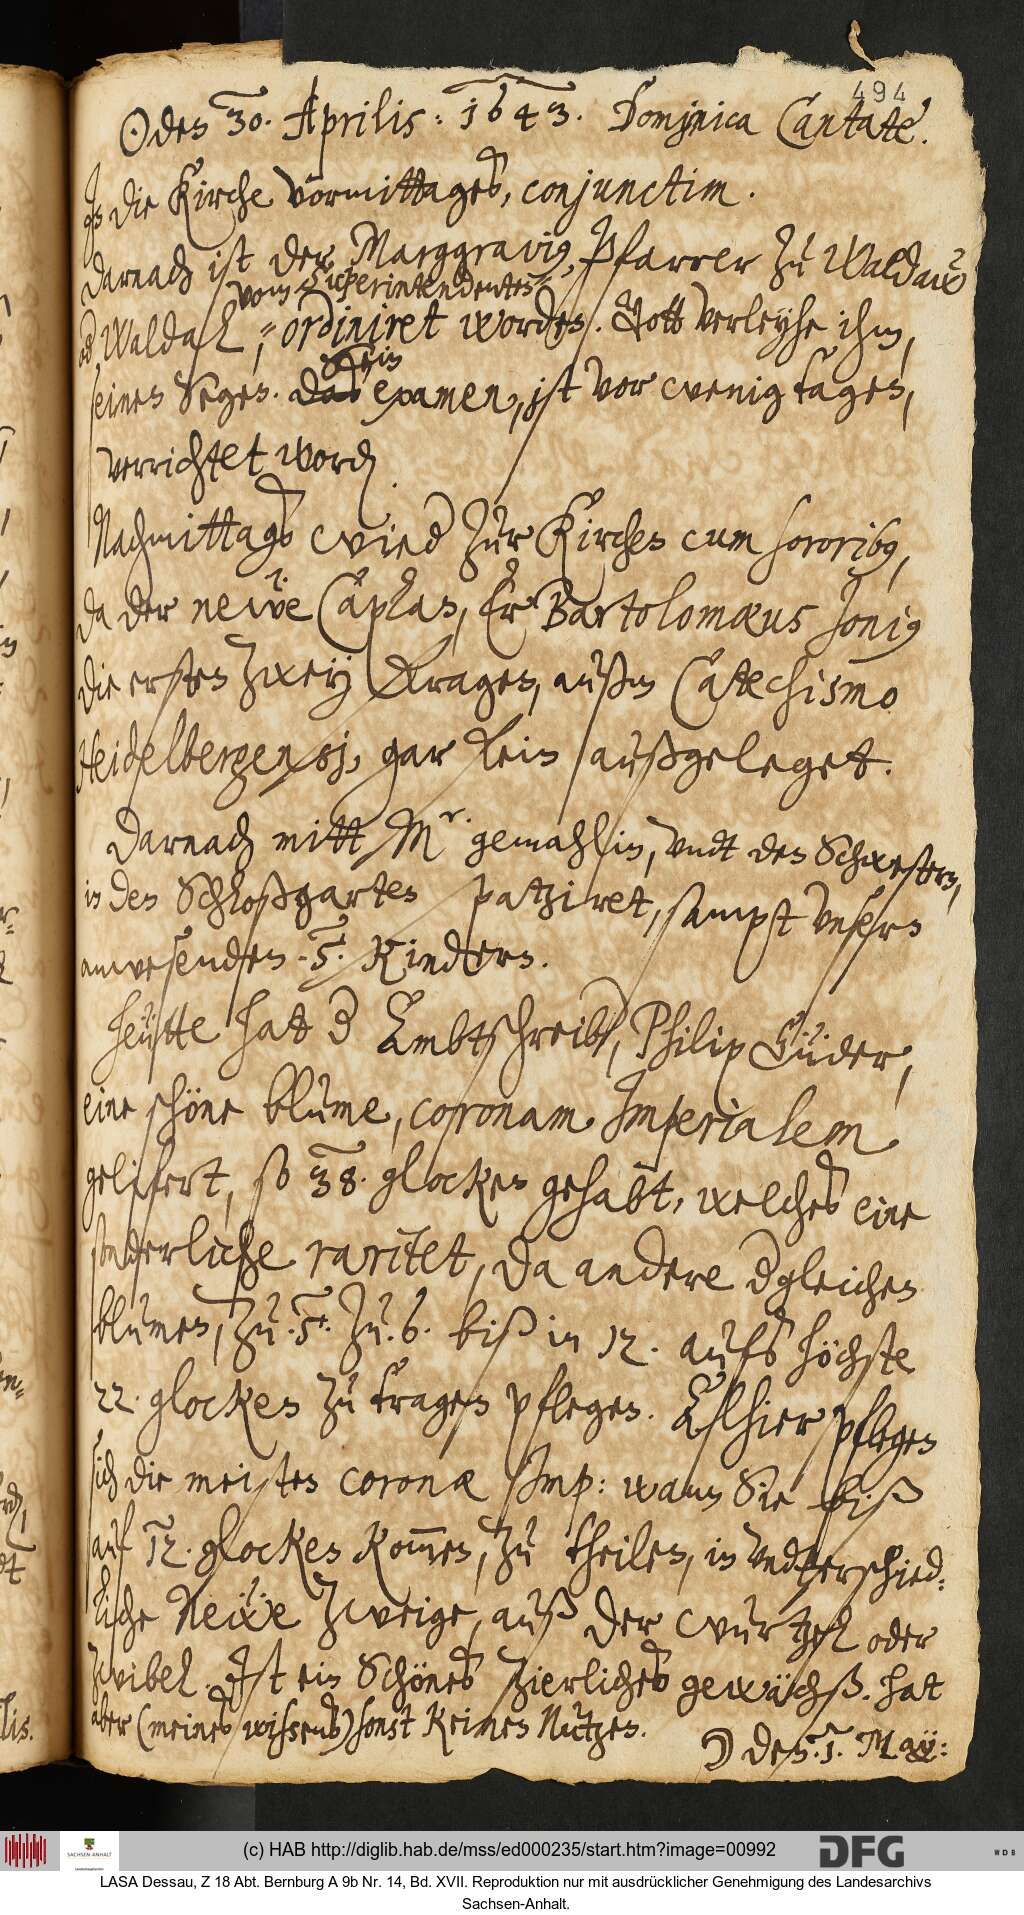 494
☉ den 30. Aprilis: 1643. Dominica Cantate.
Jn die Kirche vormittages, conjunctim.
Darnach ist der Marggravig, Pfarrer zu Waldaw
vom Superintendenten
od Waldach, ordiniret worden. Gott verleyhe ihm,
sein
seinen Segen. das examen, ist vor wenig tagen,
verrichtet word.
Nachmittags wied zur Kirchen cum sororibg,
da der newe Caplan, Er Bartolomæus Jonig
die ersten zwey fragen, außm Catechismo
Heidelbergensj, gar fein außgeleget.
Darnach mitt Mr. gemahlin, vndt den Schwestern,
in den Schloßgarten spatziret, sampt vnsern
anwesenden .5. Kindern.
Heütte hat d Ambtschreibr, Philip Güder,
eine schöne blume, coronam Jmperialem
gelifert, so 38. glocken gehabt, welches eine
sonderliche raritet, da andere dgleichen
blumen, zu .5. zu .6. biß in 12. aufs höchste
22. glocken zu tragen pflegen. Alhier pflegen
sich die meisten coronæ Jmp: wann Sie biß
auf 12. glocken kommen, zu theilen, in vndterschied-
liche Newe zweige, auß der wurtzel oder
zwibel. Jst ein Schönes zierliches gewächß. hat
aber (meines wißens) sonst keinen Nutzen.
☽ den .1. May:
(c) HAB http://diglib.hab.de/mss/ed000235/start.htm?image=00992
SACHSEN-ANHALT
DFG
WDB
LASA Dessau, Z 18 Abt. Bernburg A 9b Nr. 14, Bd. XVII. Reproduktion nur mit ausdrücklicher Genehmigung des Landesarchivs
Sachsen-Anhalt.